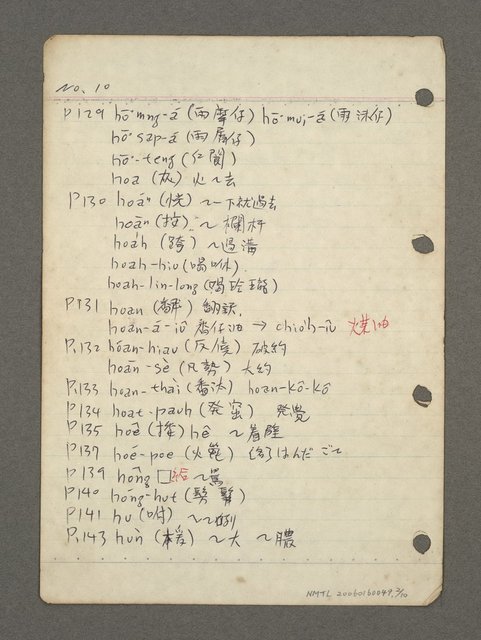 No. 10
P129 hō͘-mng-á (雨摩仔) hō͘-mui-á (雨沬仔)
hō͘-sap-á (雨屑仔)
hō͘-teng (仁門)
hoa (灰) 火~去
P130 hoáⁿ (恍) ~一下就過去
hoāⁿ (按) ~欄杆
hoah (跨) ~過溝
hoah-hiu (喝咻)
hoah-lin-long (喝玲瑯)
P131 hoan (翻) 翻鋏
hoan-á-iû 番仔油 → chioh-iû 煤油
P.132 hóan-hiau (反僥) 破約
hoān-sè (凡勢) 大約
P.133 hoan-thài (番汰) hoan-kô-kô
P134 hoat-pauh (発窑) 発覺
P135 hoê (接) hê ~着壁
P137 hoé-poe (火篦) はんだごて
P139 hōng □給 ~罵
P140 hong-hut (髣髴)
P141 hu (咐) ~~例
P.143 hûn (楥) ~大 ~膿
NMTL 20060160049, 2/10